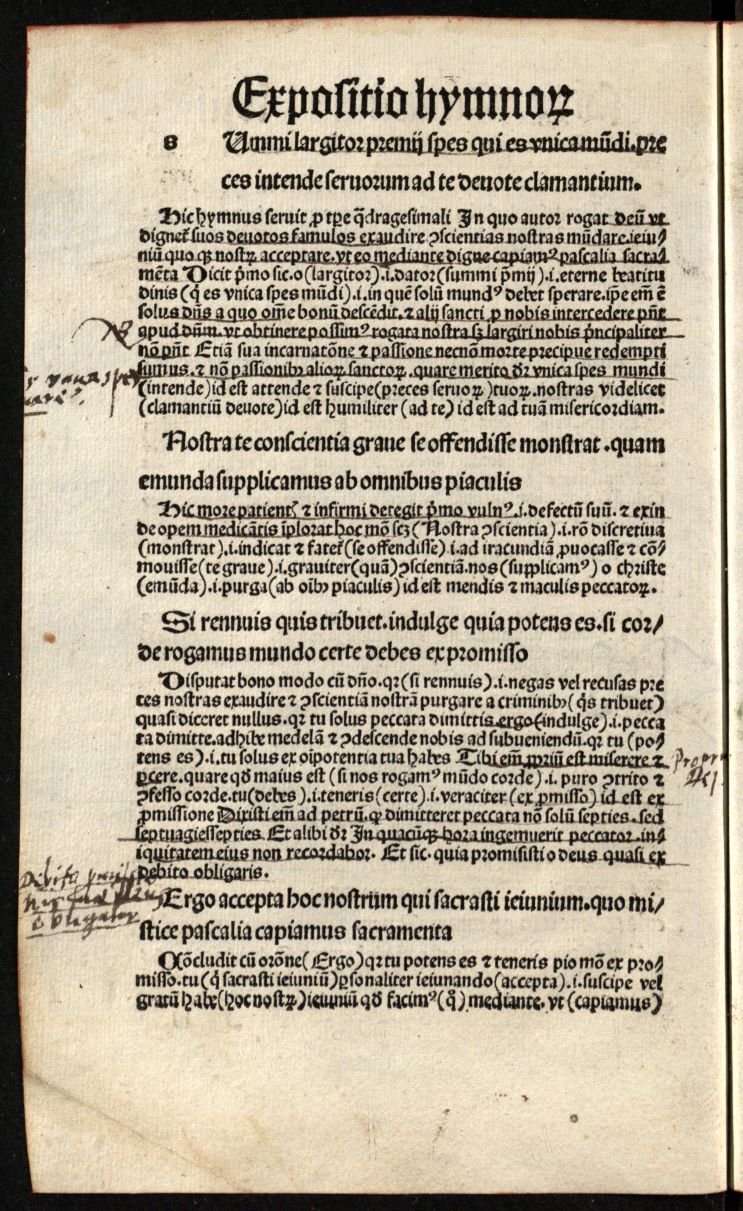 Expositio hymnoꝝ
s Ummi largitor premij spes qui es vnica mūdi. pre
ces intende seruorum ad te deuote clamantium.
Hic hymnus seruit ꝓ tꝑe q̄dragesimali In quo autor rogat deū vt
digneť suos deuotos famulos exaudire ꝯscientias nostras mūdare. ieiu⸗
niū quoqꝫ nostꝝ acceptare. vt eo mediante digne capiamꝰ pascalia sacra⸗
mēta Dicit pͥmo sic. o (largitor) .i. dator (summi p̄mij) .i. eterne beatitu
dinis (q̇ es vnica spes mūdi) .i. in quē solū mundꝰ debet sperare. ipe em̄ ē
solus dn̄s a quo om̄e bonū descēdit. ⁊ alij sancti ꝓ nobis intercedere pn̄t
apud dn̄m. vt obtinere possimꝰ rogata nostra sꝫ largiri nobis pͥncipaliter
nō pn̄t Etiā sua incarnatōne ⁊ passione necnō morte precipue redempti
sumus. ⁊ nō passionibꝫ alioꝝ sanctoꝝ. quare merito dr̄ vnica spes mundi
(intende) id est attende ⁊ suscipe (preces seruoꝝ) tuoꝝ. nostras videlicet
(clamantiū deuote) id est humiliter (ad te) id est ad tuā misericordiam.
Nostra te conscientia graue se offendisse monstrat. quam
emunda supplicamus ab omnibus piaculis
Hic more patientꝭ ⁊ infirmi detegit pͥmo vulnꝰ .i. defectū suū. ⁊ exin
de opem medicātis īplorat hoc mō scꝫ (Nostra ꝯscientia) .i. rō discretiua
(monstrat) .i. indicat ⁊ fateť (se offendisse) .i. ad iracundiā ꝓuocasse ⁊ cō⸗
mouisse (te graue) .i. grauiter (quā) ꝯscientiā. nos (supplicamꝰ) o christe
(emūda) .i. purga (ab oībꝫ piaculis) id est mendis ⁊ maculis peccatoꝝ.
Si rennuis quis tribuet. indulge quia potens es. si cor⸗
de rogamus mundo certe debes ex promisso
Disputat bono modo cū dn̄o. qꝛ (si rennuis) .i. negas vel recusas pre
ces nostras exaudire ⁊ ꝯscientiā nostrā purgare a criminibꝫ (q̇s tribuet)
quasi diceret nullus. qꝛ tu solus peccata dimittis ergo (indulge) .i. pecca
ta dimitte. adhibe medelā ⁊ ꝯdescende nobis ad subueniendū. qꝛ tu (po⸗
tens es) .i. tu solus ex oīpotentia tua habes Tibi em̄ ꝓpriū est miserere ⁊
ꝑcere. quare qd̄ maius est (si nos rogamꝰ mūdo corde) .i. puro ꝯtrito ⁊
ꝯfesso corde. tu (debes) .i. teneris (certe) .i. veraciter (ex ꝓmisso) id est ex
ꝓmissione Dixisti em̄ ad petrū. ꝙ dimitteret peccata nō solū septies. sed
septuagiessepties. Et alibi dr̄ In quacūqꝫ hora ingemuerit peccator. in⸗
iquitatem eius non recordabor. Et sic. quia promisisti o deus quasi ex
debito obligaris.
Ergo accepta hoc nostrum qui sacrasti ieiunium. quo mi⸗
stice pascalia capiamus sacramenta
Cōcludit cū orōne (Ergo) qꝛ tu potens es ⁊ teneris pio mō ex pro⸗
misso. tu (q̇ sacrasti ieiuniū) ꝑsonaliter ieiunando (accepta) .i. suscipe vel
gratū habe (hoc nostꝝ) ieiuniū qd̄ facimꝰ (q̊) mediante. vt (capiamus)